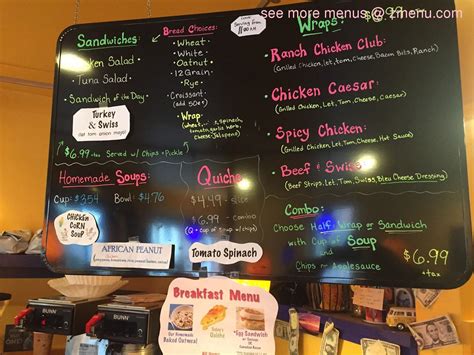 see more menus @ zmenu.com
Sandwiches:
Chicken Salad
Tuna Salad
Sandwich of the Day
Turkey
& Swiss
$6.99 Served w/ Chips + Pickle
Bread Choices:
Wheat
White
Oatnut
12 Grain
Rye
Croissant
(add 50¢)
Wrap:
Serving from
11:00 AM
Homemade Soups:
Cup: $3.54 Bowl: $4.76
CHICKEN
CORN
SOUP
AFRICAN PEANUT
Quiche
$4.49 - slice
$6.99 - combo
(Q + cup of soup w/ chips)
Tomato Spinach
Wraps:
Ranch Chicken Club:
(Grilled Chicken, Let, Tom, Cheese, Bacon Bits, Ranch)
Chicken Caesar
(Grilled Chicken, Let, Tom, Cheese, Caesar)
Spicy Chicken:
(Grilled Chicken, Let, Tom, Cheese, Hot Sauce)
Beef & Swiss
(Beef Strips, Let, Tom, Swiss, Bleu Cheese Dressing)
$6.99
Combo:
Choose Half Wrap or Sandwich
with Cup of Soup
and
Chips or Applesauce
$6.99
+tax
Breakfast Menu
Quiche
*Egg Sandwich
Our Homemade
Baked Oatmeal
BUNN
BUNN